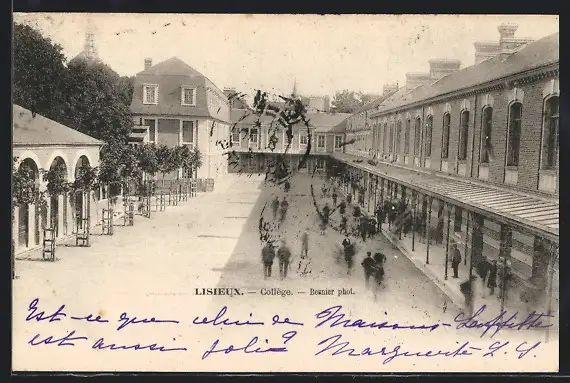 LISIEUX. — Collège. — Besnier phot.
Est-ce que celui de Maisons-Laffitte
est aussi joli? Marguerite L. G.